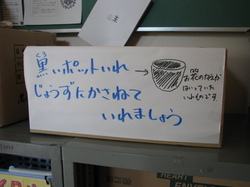 黒いポットいれ
くろ
じょうずにかさねて
いれましょう
お花のなえが
はいっていた
いれものです